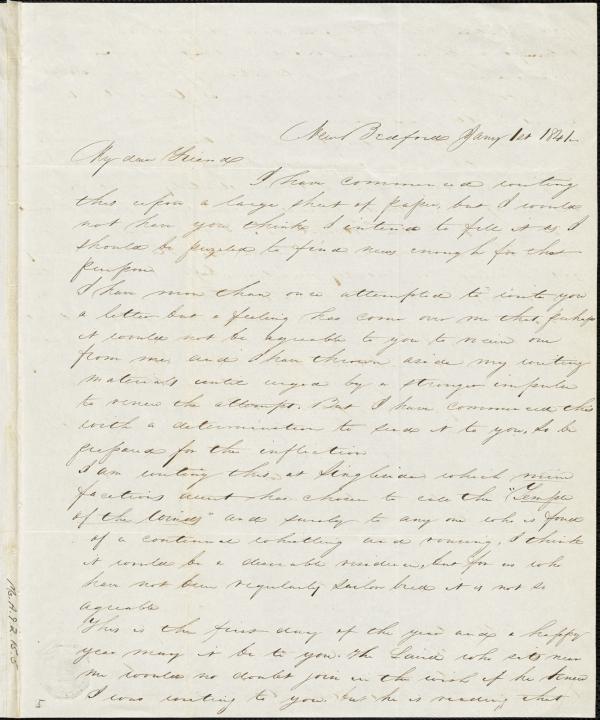 New Bedford Jany 1st 1841
My dear Friend
I have commenced writing
this upon a large sheet of paper, but I would
not have you think I intend to fill it as I
should be puzzled to find news enough for that
purpose
I have more than once attempted to write you
a letter but a feeling has come over me that, perhaps
it would not be agreeable to you to receive one
from me, and I have thrown aside my writing
materials until urged by a stronger impulse
to renew the attempt. But I have commenced this
with a determination to send it to you, so be
prepared for the infliction
I am writing this at which
facetious aunt has chosen to call the "Temple
of the Winds" and surely to any one who is fond
of a continual whistling and roaring, I think
it would be a desirable residence, but for us who
have not been regularly sailor bred it is not so
agreable
This is the first day of the year and a happy
year may it be to you. The Laird who sits near
me would no doubt join in the wish if he knew
I was writing to you but he is reading that
Ms.A.9.2.15.5
5